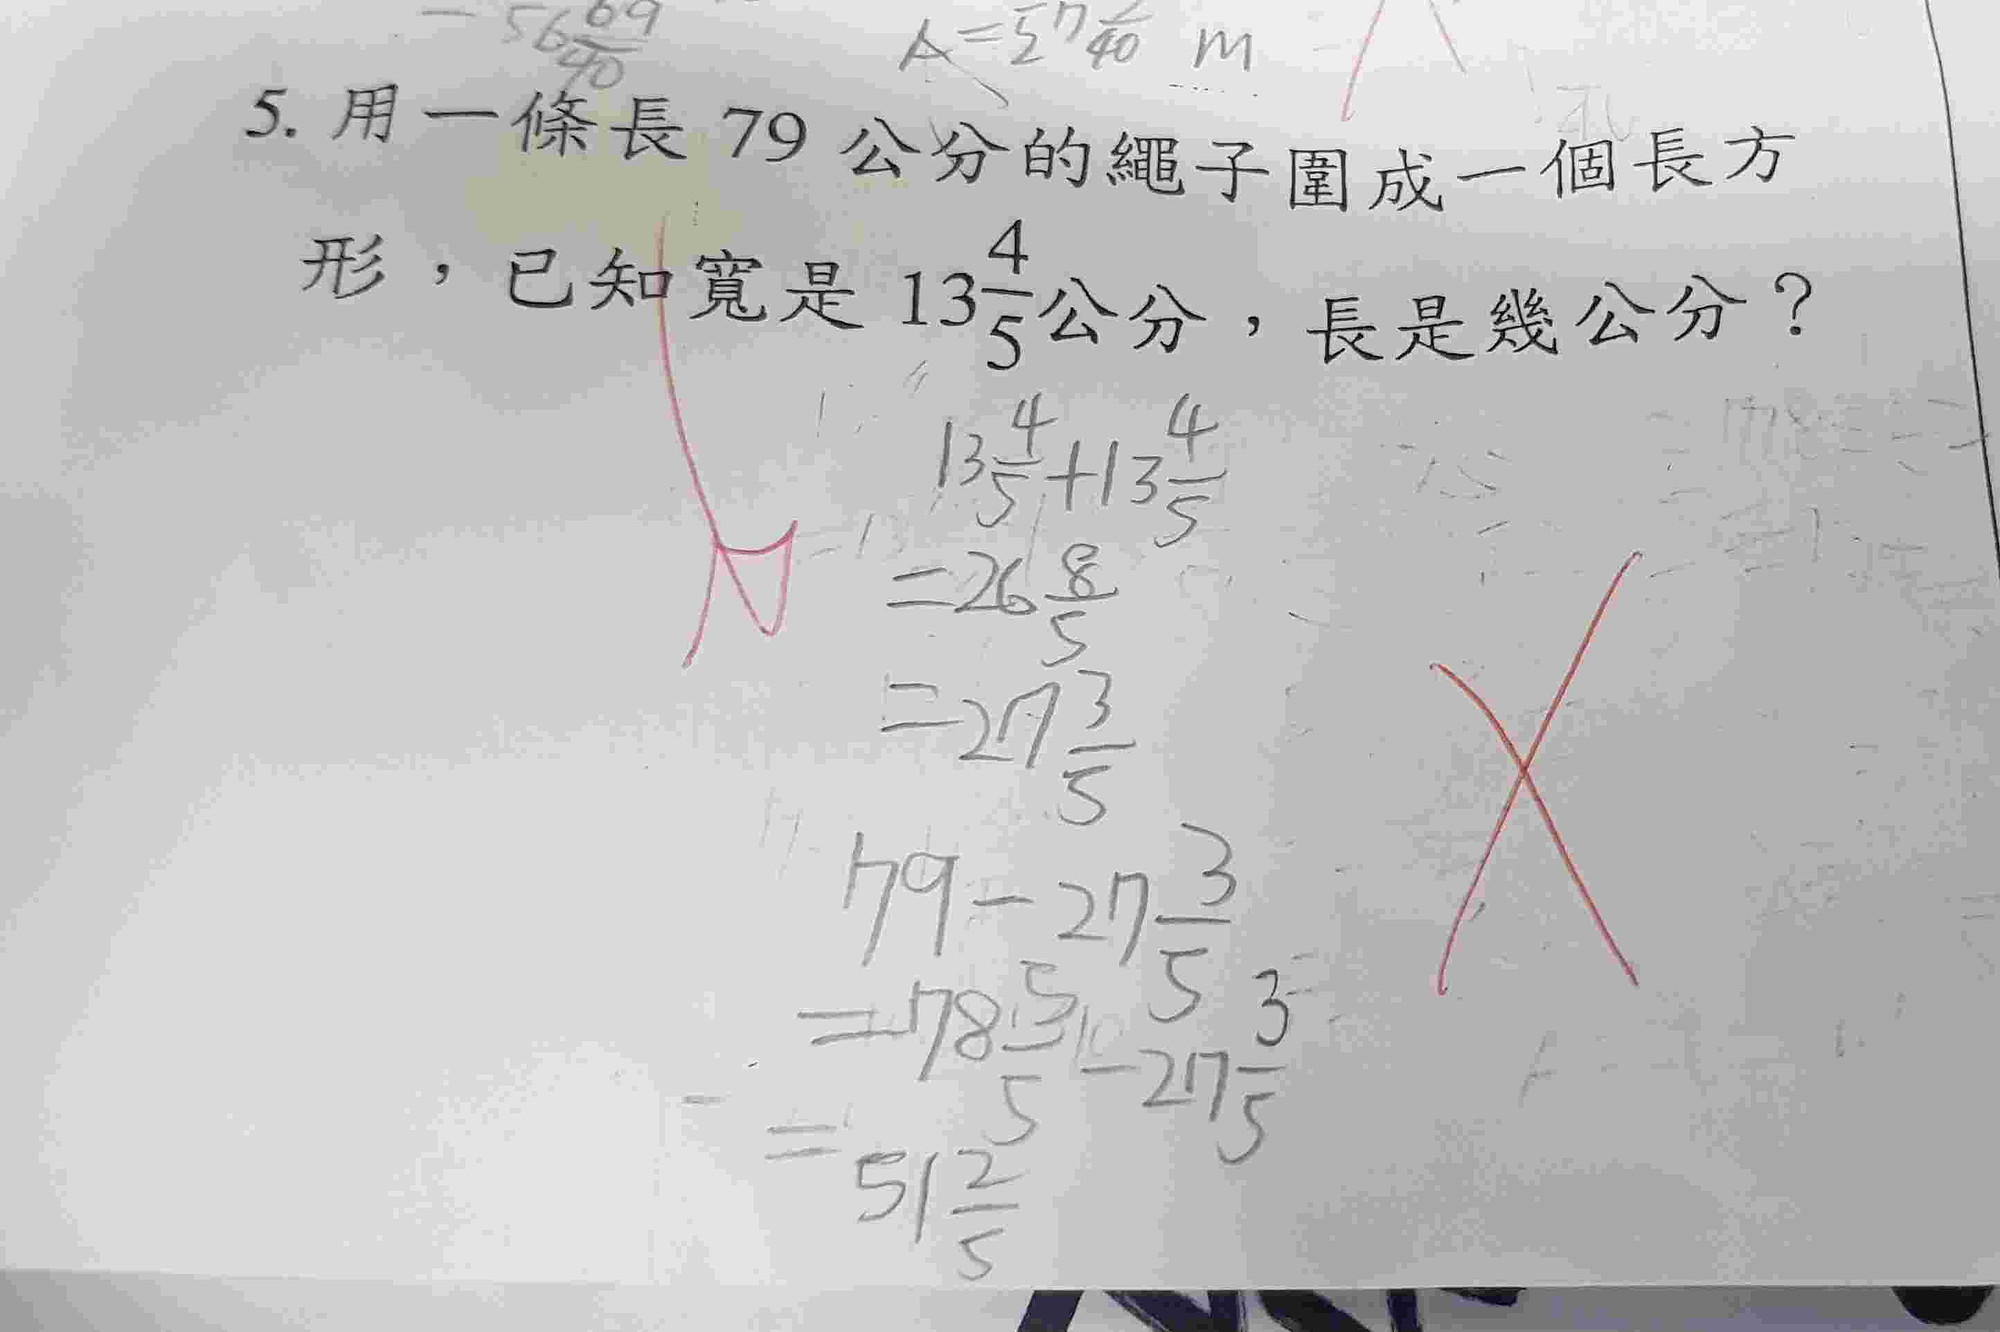 A = 57 2/40 m
5. 用一條長 79 公分的繩子圍成一個長方
形，已知寬是 13 4/5 公分，長是幾公分？
13 4/5 + 13 4/5
= 26 8/5
= 27 3/5
79 - 27 3/5
= 78 5/5 - 27 3/5
= 51 2/5